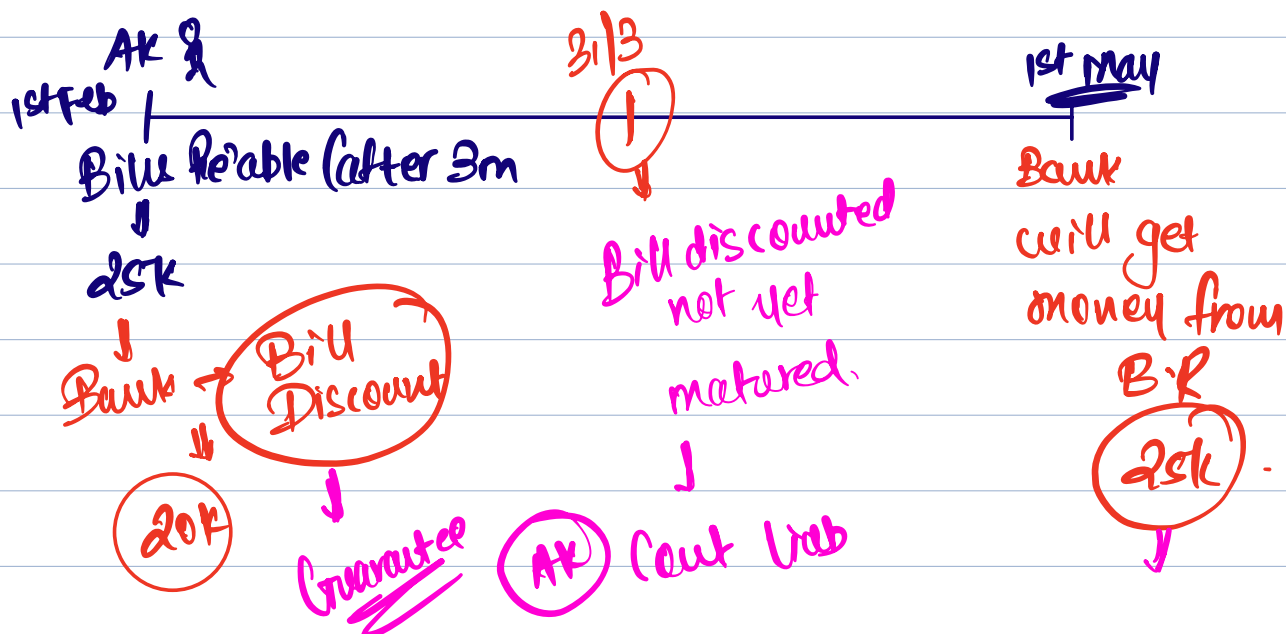 AK &
1st Feb
31/3
1st May
Bills Re'able (after 3m
25K
Bank → Bill
Discount
20K
Guarantee
Bill discounted
not yet
matured.
AK Cont Liab
Bank
will get
money from
B.R
25K